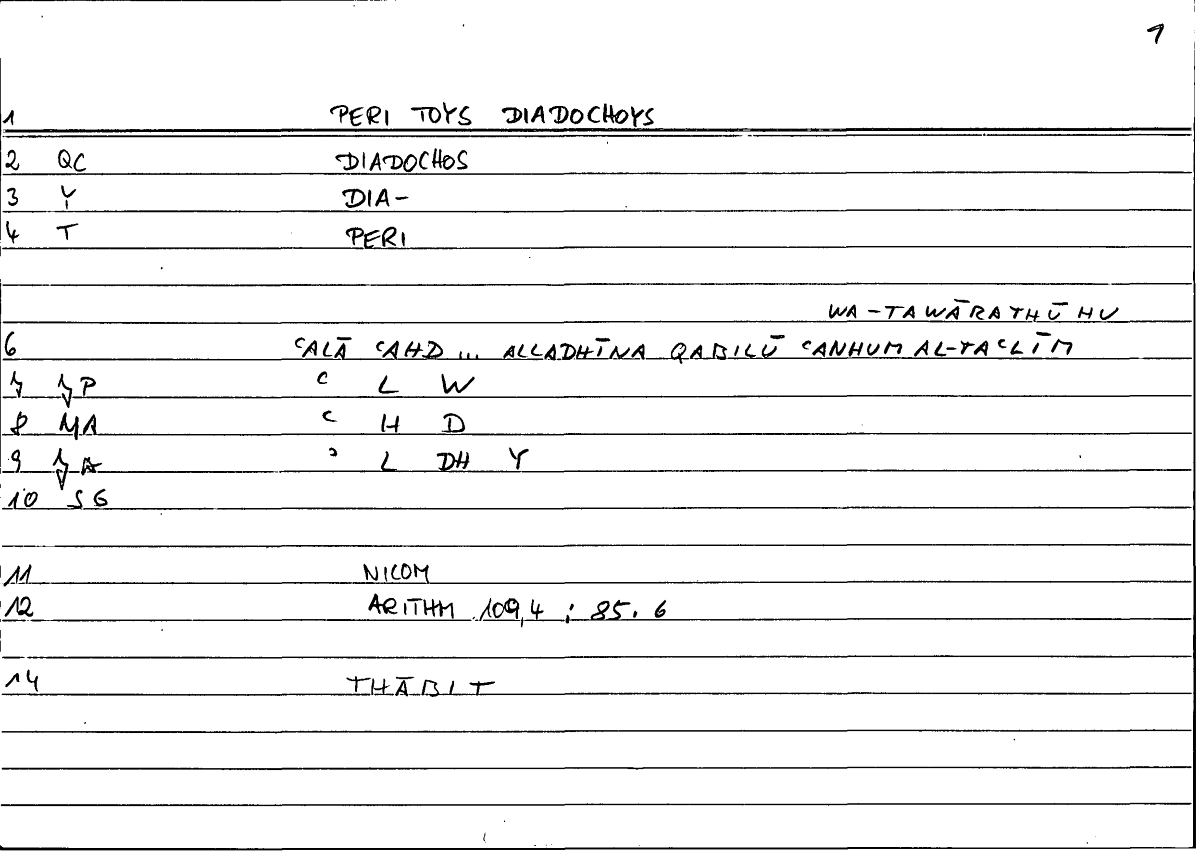 1
1 PERI TOYS DIADOCHOYS
2 QC DIADOCHOS
3 Y DIA-
4 T PERI
WA-TAWĀRATHŪHU
6 ʿALĀ ʿAHD ... ALLADHĪNA QABILŪ ʿANHUM AL-TAʿLĪM
7 P ʿ L W
8 MA ʿ H D
9 A ʾ L DH Y
10 SG
11 NICOM
12 ARITHM 109,4 ; 85.6
14 THĀBIT